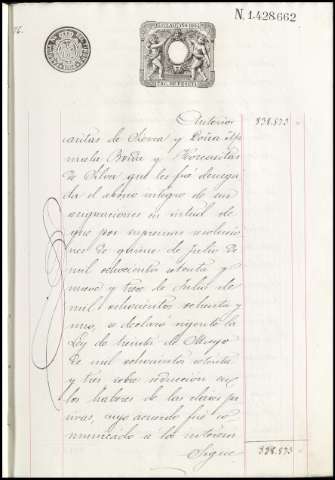 N. 1.428.662
Anterior 838.873
caritas de Roca y Doña
mala Breña y Mercedita
de Silva que les fue denega
da el abono integro de sus
asignaciones en virtud de
que por supremas resolucio
nes de quince de Julio de
mil ochocientos setenta y
nueve y trece de Julio de
mil ochocientos ochenta y
uno, se declaró vigente la
Ley de treinta de Mayo
de mil ochocientos setenta
y tres sobre reducción en
los haberes de las clases pa
sivas, cuyo acuerdo fué co
municado a los
Sigue 838.873